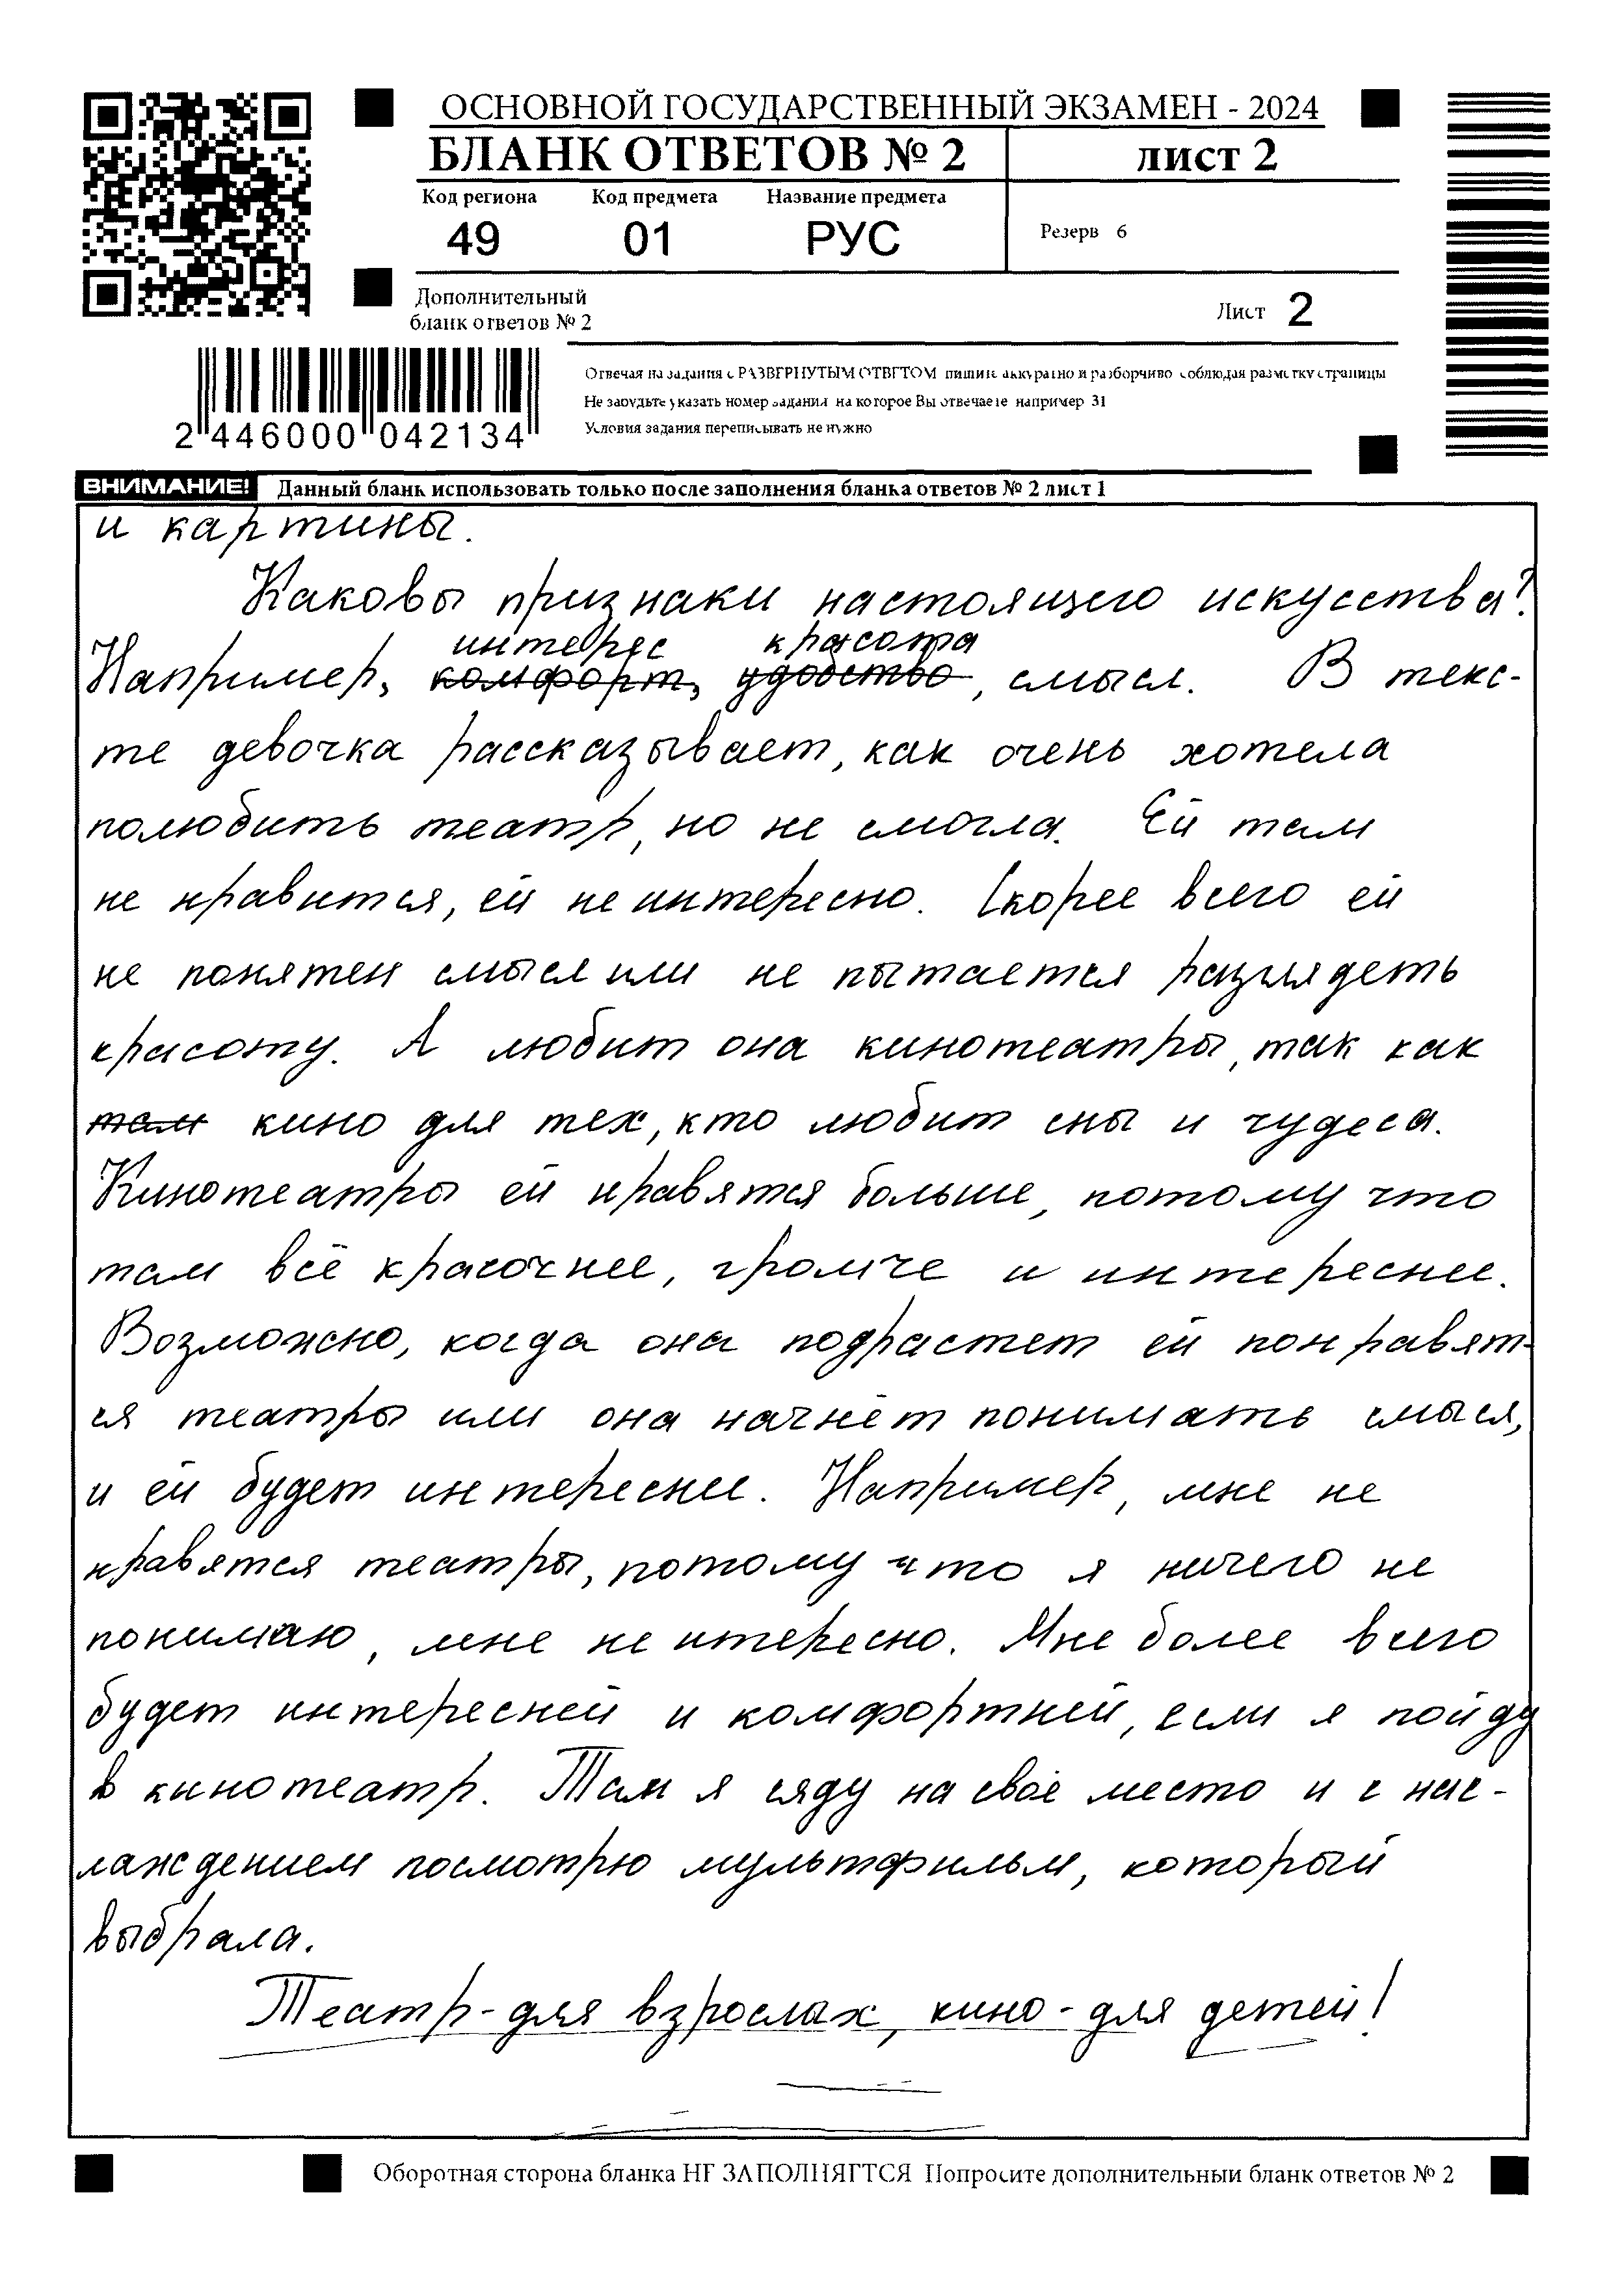 ОСНОВНОЙ ГОСУДАРСТВЕННЫЙ ЭКЗАМЕН - 2024
БЛАНК ОТВЕТОВ № 2 лист 2
Код региона Код предмета Название предмета
49 01 РУС
Резерв 6
Дополнительный
бланк ответов № 2
Лист 2
Отвечая на задания с РАЗВЕРНУТЫМ ОТВЕТОМ пишите аккуратно и разборчиво соблюдая разметку страницы
Не забудьте указать номер задания на которое Вы отвечаете например 31
Условия задания переписывать не нужно
2 446000 042134
ВНИМАНИЕ! Данный бланк использовать только после заполнения бланка ответов № 2 лист 1
и картины.
Каковы признаки настоящего искусства?
интерес красота
Например, комфорт, удобство, смысл. В текс-
те девочка рассказывает, как очень хотела
полюбить театр, но не смогла. Ей там
не нравится, ей не интересно. Скорее всего ей
не понятен смысл или не пытается разглядеть
красоту. А любит она кинотеатры, так как
там кино для тех, кто любит сны и чудеса.
Кинотеатры ей нравятся больше, потому что
там всё красочнее, громче и интереснее.
Возможно, когда она подрастет ей понравят-
ся театры или она начнёт понимать смысл,
и ей будет интереснее. Например, мне не
нравятся театры, потому что я ничего не
понимаю, мне не итересно. Мне более всего
будет интересней и комфортней, если я пойду
в кинотеатр. Там я сяду на своё место и с нас-
лаждением посмотрю мультфильм, который
выбрала.
Театр-для взрослах, кино-для детей!
Оборотная сторона бланка НЕ ЗАПОЛНЯЕТСЯ Попросите дополнительный бланк ответов № 2